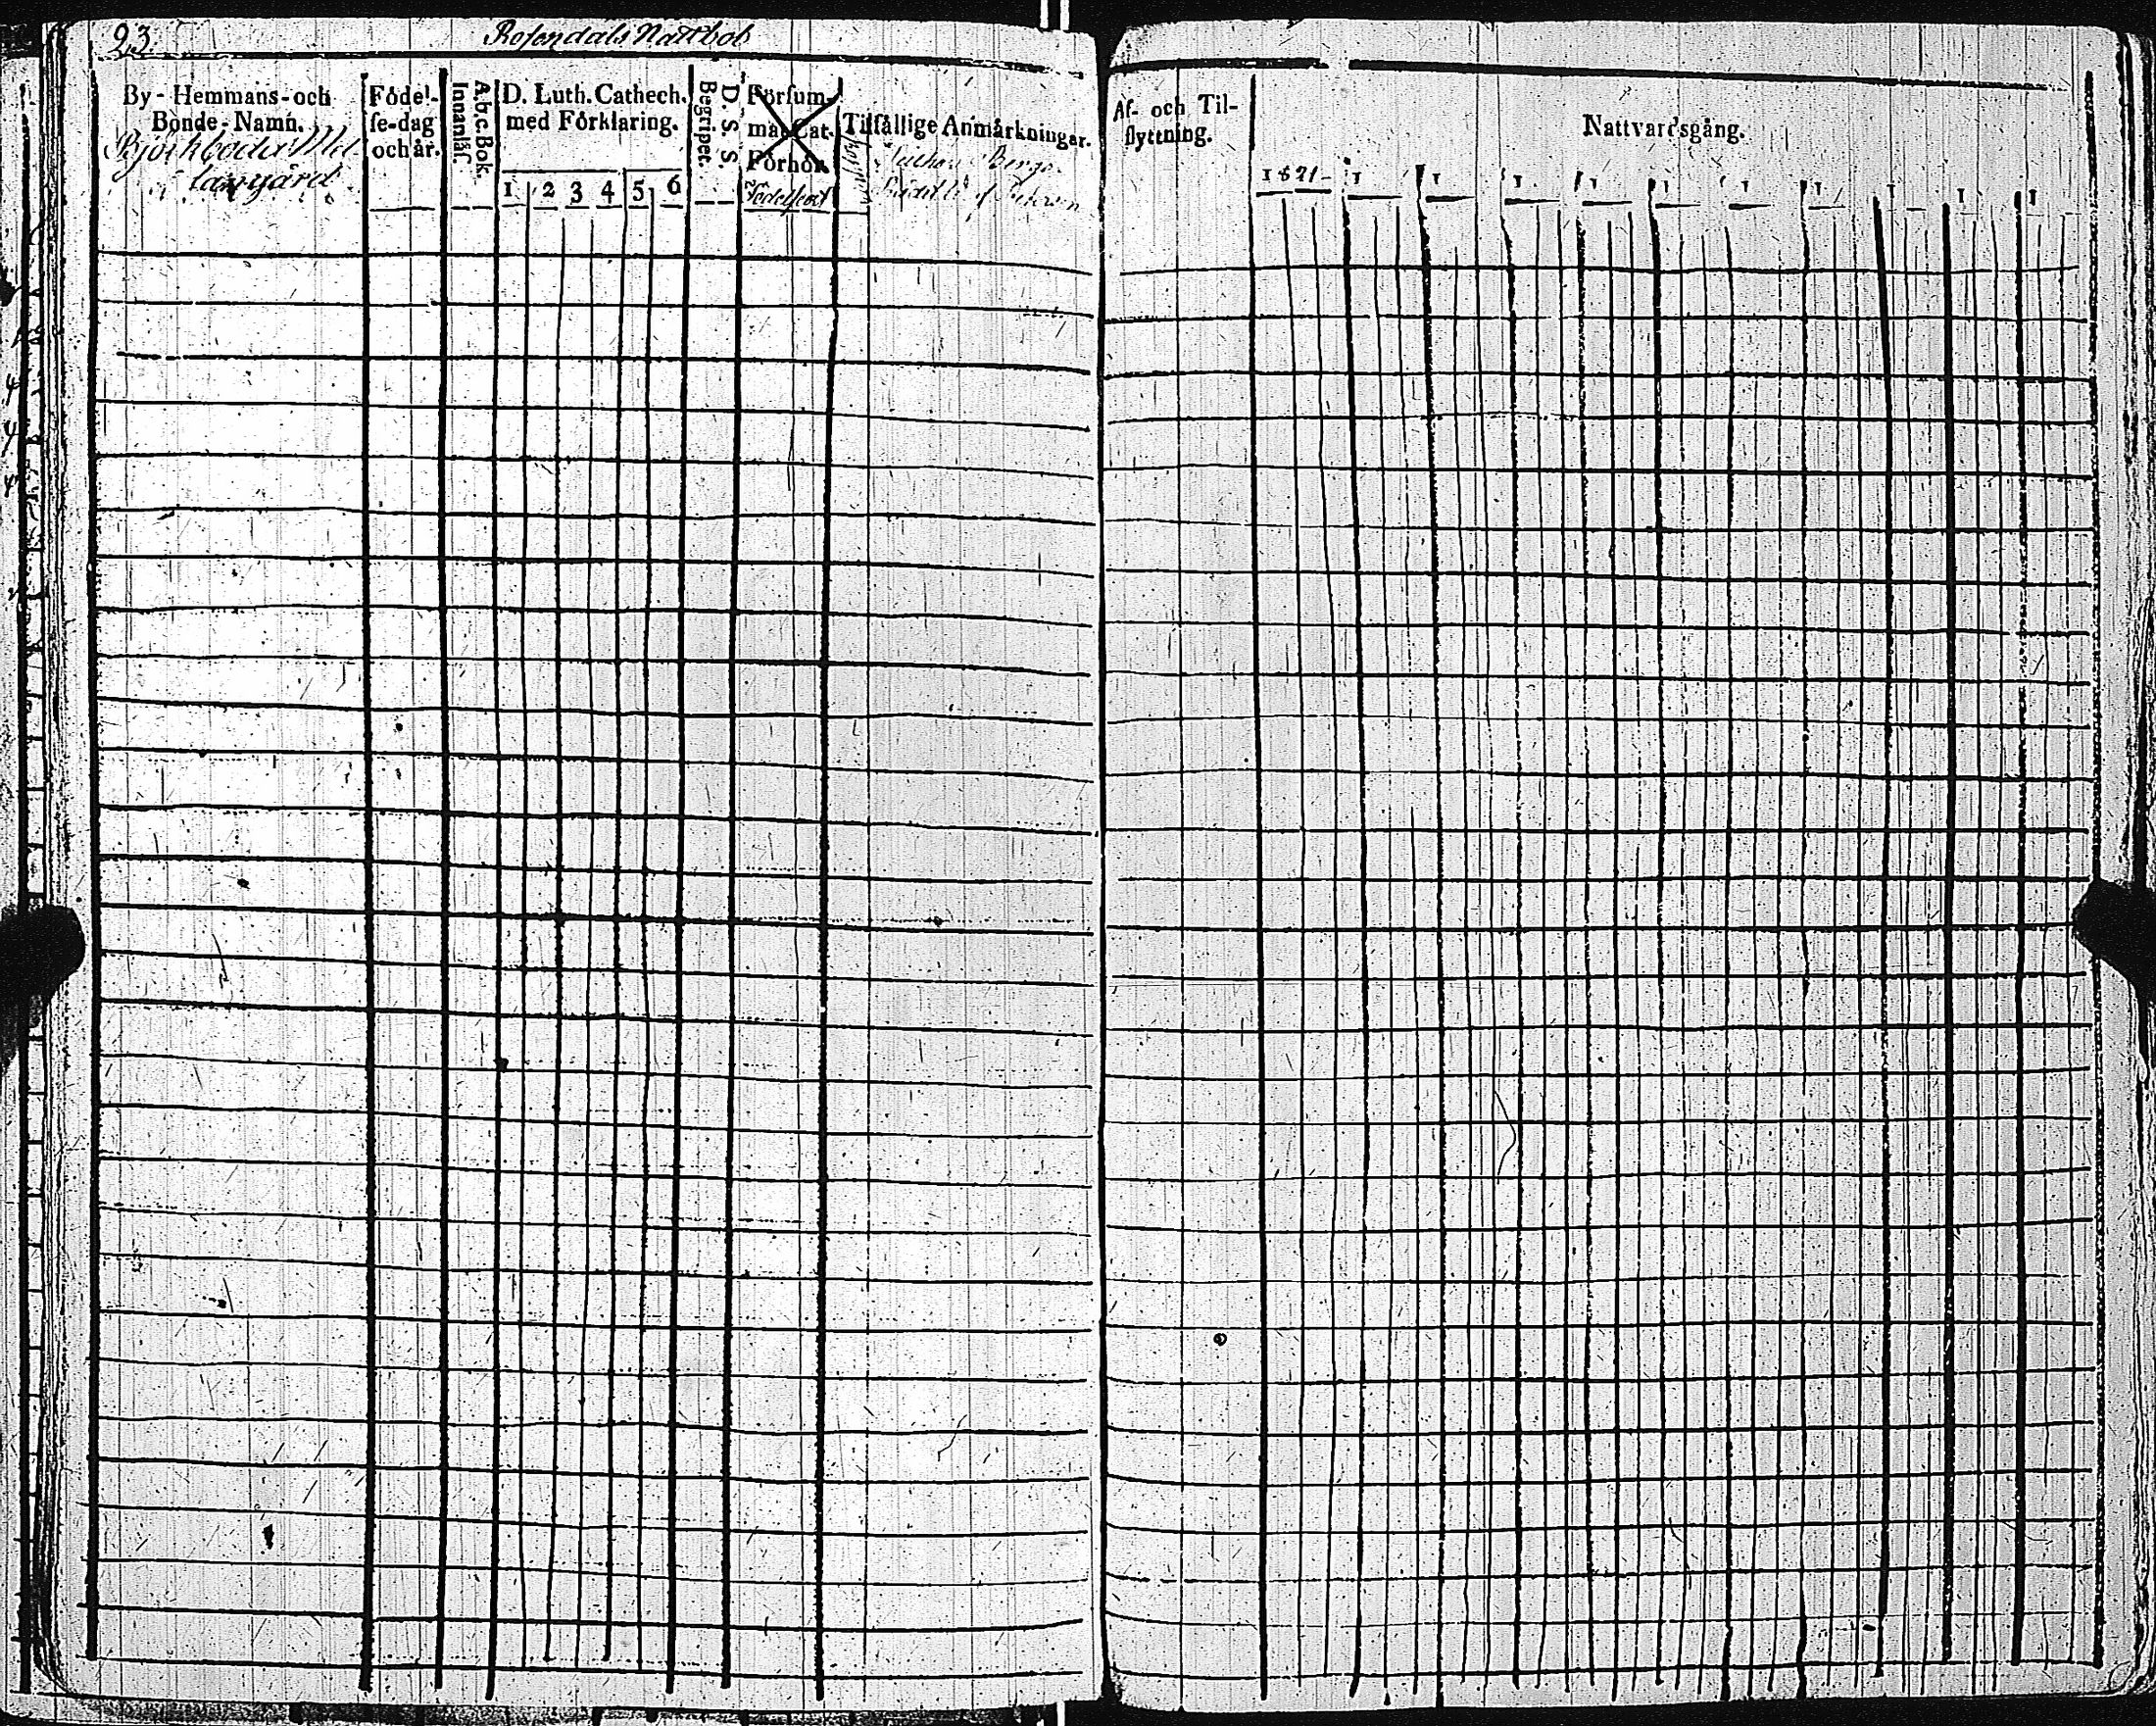 23.
Rosendals Nattbol
By- Hemmans- och
Bonde-Namn.
Födel-
se-dag
och år.
A.b.c.Bok.
Innanläs.
D. Luth. Cathech.
med Förklaring.
1 2 3 4 5 6
D. S. S.
Begripet.
Försum-
mat Cat.
Förhör.
Födelseort
Tilfällige Anmärkningar.
Af- och Til-
flyttning.
Nattvardsgång.
1821 1 1 1 1 1 1 1 1 1 1